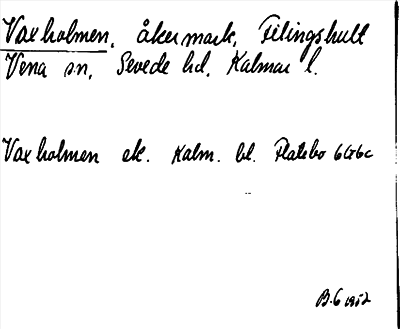 Vaxholmen, åkermark, Filingshult
Vena sn, Sevede hd, Kalmar l.
Vaxholmen ek. Kalm. bl. Flatebo 6G6c
B.G 1952